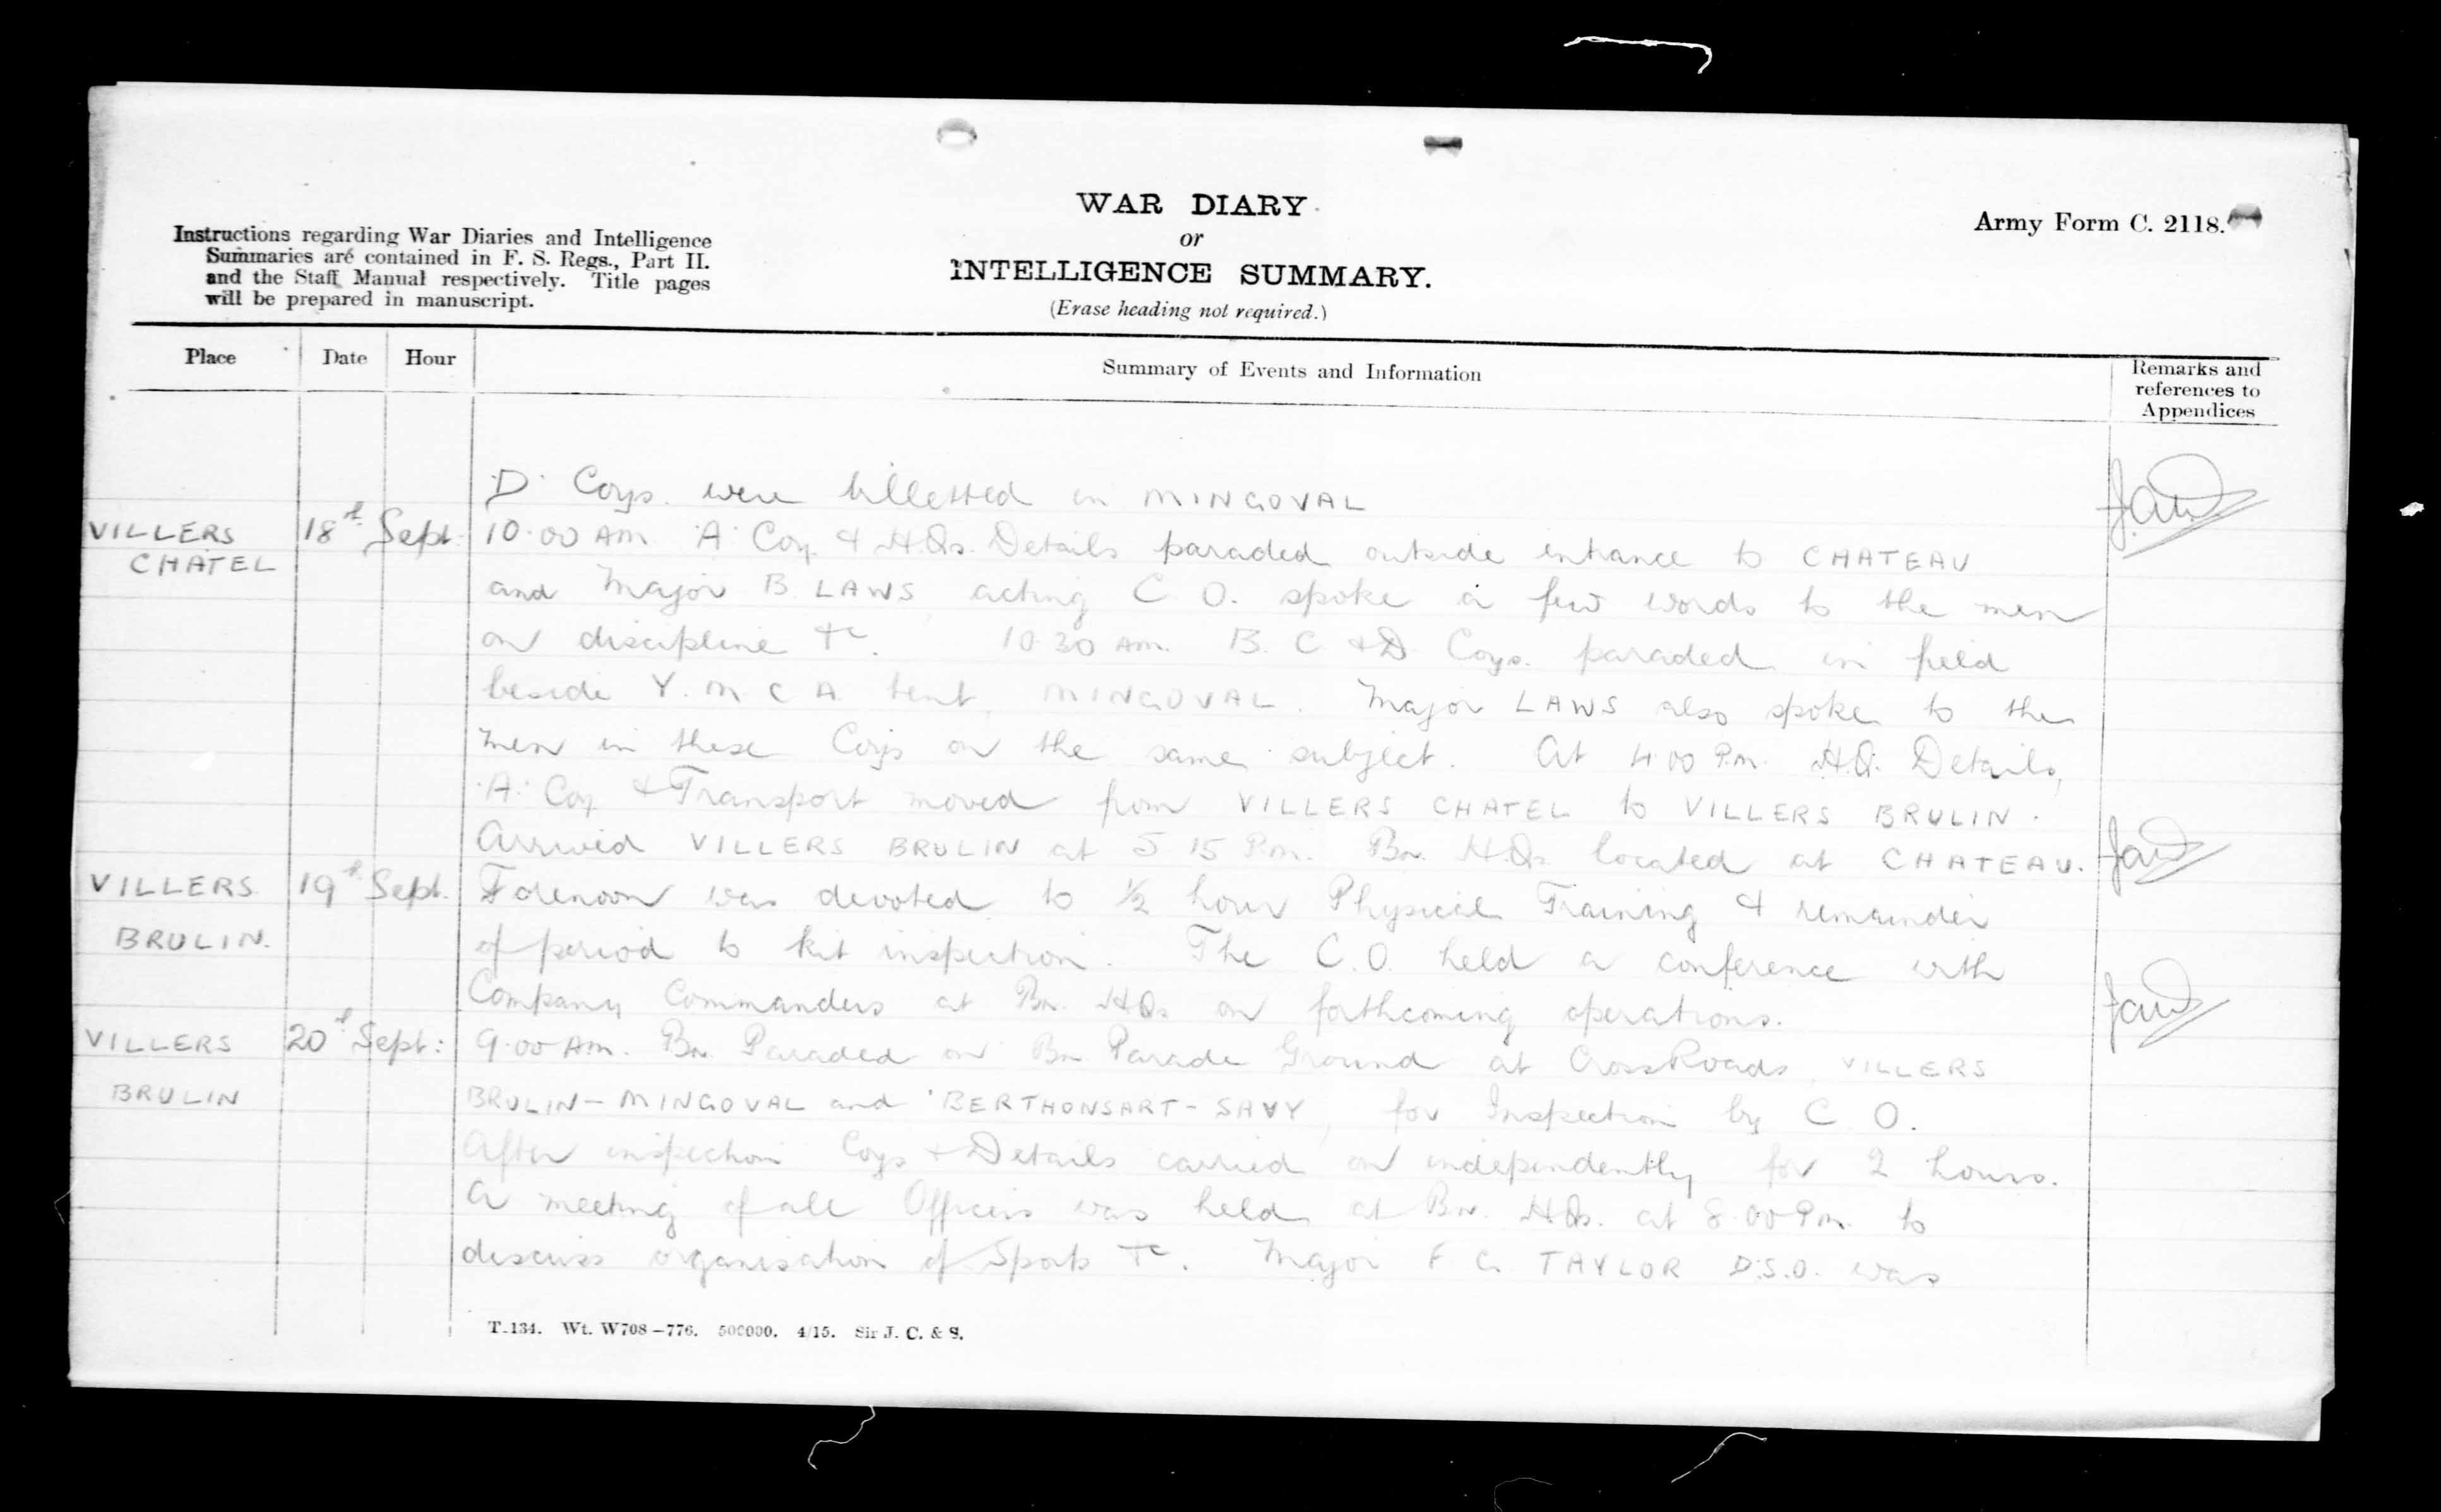 WAR DIARY
or
INTELLIGENCE SUMMARY.
(Erase heading not required.)
Army Form C. 2118.
Instructions regarding War Diaries and Intelligence
Summaries are contained in F. S. Regs., Part II.
and the Staff Manual respectively. Title pages
will be prepared in manuscript.
Place Date Hour Summary of Events and Information Remarks and
references to
Appendices
"D" Coys. were billetted in MINGOVAL
VILLERS 18th Sept. 10.00 AM "A" Coy. & H.Qs. Details paraded outside entrance to CHATEAU
CHATEL and Major B. LAWS, acting C.O. spoke a few words to the men
on discipline &c. 10.30 AM. B. C. & D Coys. paraded in field
beside Y.M.C.A. tent, MINGOVAL. Major LAWS also spoke to the
men in these Coys on the same subject. At 4.00 P.M. H.Q. Details,
"A" Coy & Transport moved from VILLERS CHATEL to VILLERS BRULIN.
Arrived VILLERS BRULIN at 5.15 P.M. Bn. H.Qs. located at CHATEAU.
VILLERS 19th Sept. Forenoon was devoted to ½ hour Physical Training & remainder
BRULIN. of period to kit inspection. The C.O. held a conference with
Company Commanders at Bn. H.Qs on forthcoming operations.
VILLERS 20th Sept: 9.00 AM. Bn. Paraded on Bn Parade Ground at CrossRoads, VILLERS
BRULIN BRULIN-MINGOVAL and BERTHONSART-SAVY, for Inspection by C.O.
After inspection Coys & Details carried on independently for 2 hours.
A meeting of all Officers was held at Bn. H.Qs. at 8.00 P.M. to
discuss organisation of Sports &c. Major F. G. TAYLOR D.S.O. was
T.134. Wt. W708-776. 500000. 4/15. Sir J. C. & S.